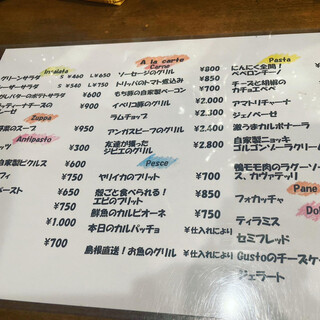 Insalata
グリーンサラダ S ¥460 L ¥650
ーザーサラダ S ¥540 L ¥750
バターのポテトサラダ ¥600
ッティーナチーズの
ーゼ ¥900
Zuppa
野菜のスープ ¥950
Antipasto
ッツ ¥300
自家製ピクルス ¥600
フィ ¥750
ペースト ¥650
¥750
¥1.000
¥700
A la carte
Carne
ソーセージのグリル ¥800
トリッパのトマト煮込み ¥850
もち豚の自家製ベーコン ¥700
イベリコ豚のグリル ¥2.000
ラムチョップ ¥2.100
アンガスビーフのグリル ¥2.400
友達が撮った
ジビエのグリル ¥2.200
Pesce
ヤリイカのフリット ¥750
殻ごと食べられる!
エビのフリット ¥850
鮮魚のカルピオーネ ¥750
本日のカルパッチョ ¥仕入れにより
島根直送!お魚のグリル ¥仕入れにより
Pasta
にんにく全開!
ペペロンチーノ
チーズと胡椒の
カチョエペペ
アマトリチャーナ
ジェノベーゼ
激うまカルボナーラ
自家製ニョッキ
ゴルゴンゾーラクリーム
鴨モモ肉のラグーソー
ス、カヴァテッリ
Pane
フォカッチャ
Do
ティラミス
セミフレッド
Gustoのチーズケー
ジェラート